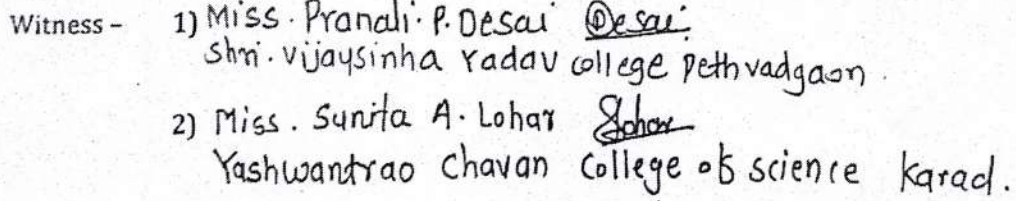 Witness - 1) Miss. Pranali. P. Desai Desai
Shri. vijaysinha Yadav college pethvadgaon.
2) Miss. Sunita A. Lohar Lohar
Yashwantrao Chavan College of science Karad.